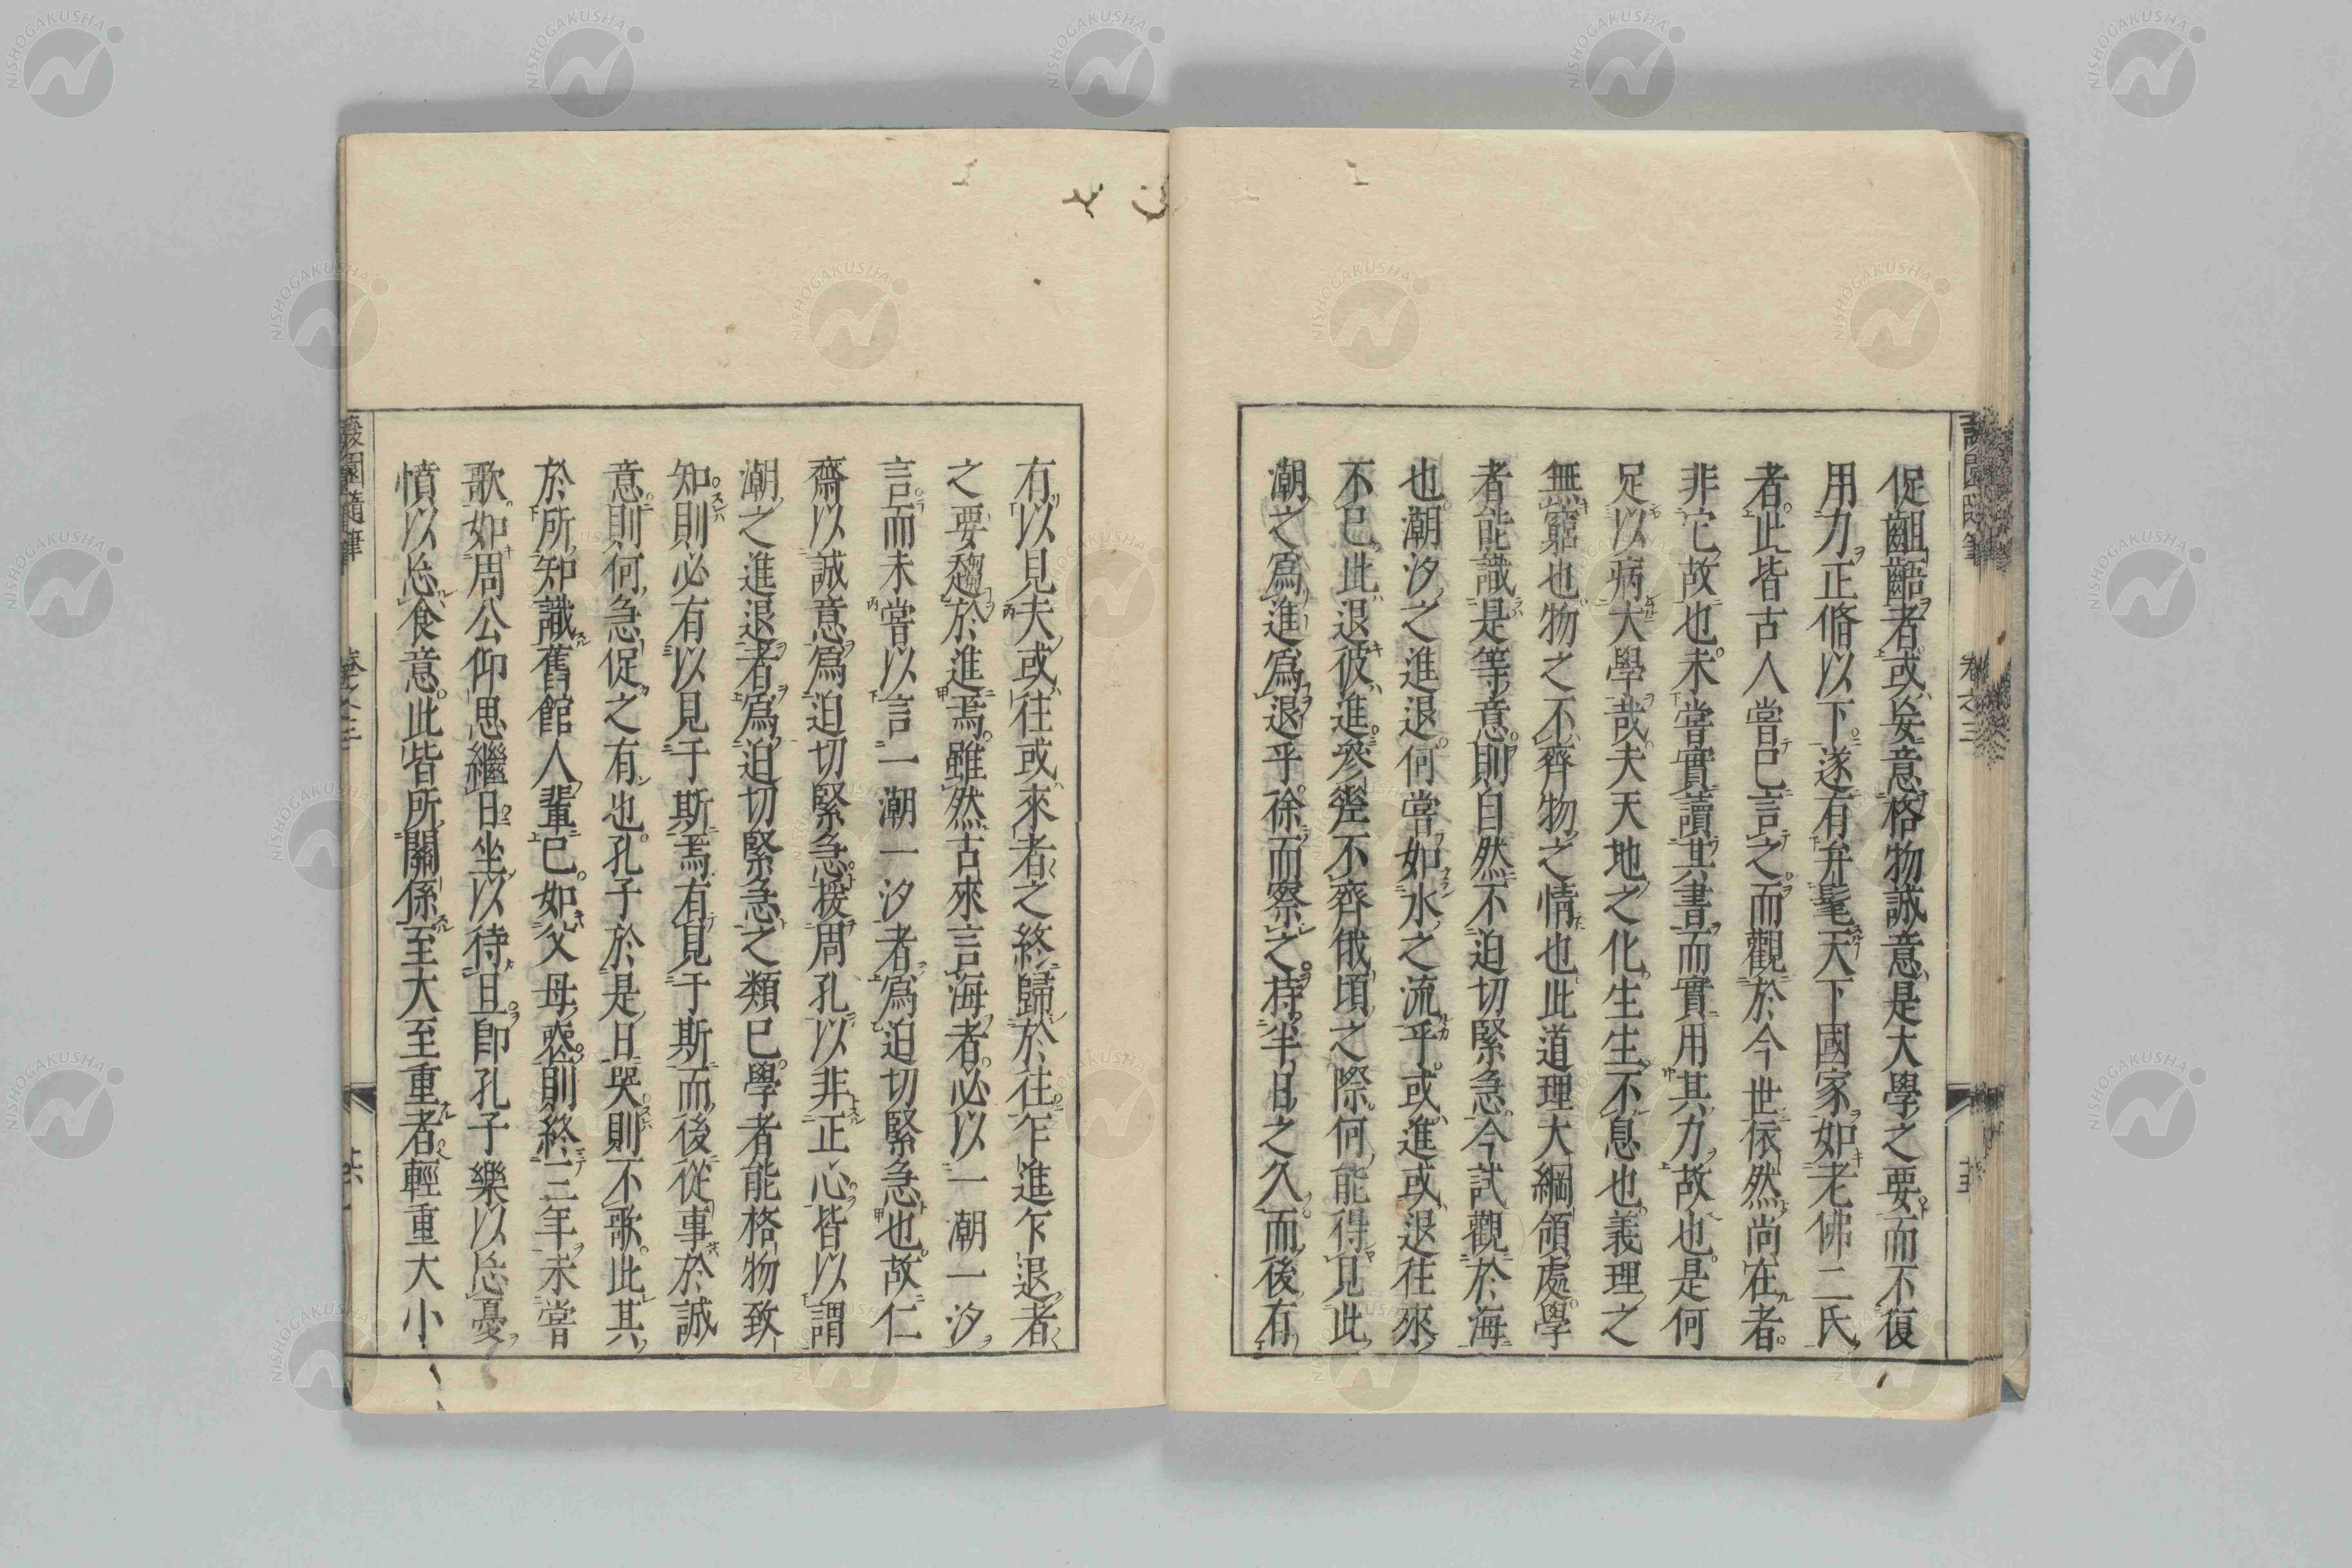 促齟齬者或妄意格物誠意是大學之要而不復
用力正脩以下遂有弁髦天下國家如老佛二氏
者此皆古人嘗已言之而觀於今世依然尚在者
非它故也未嘗實讀其書而實用其力故也是何
足以病大學哉夫天地之化生生不息也義理之
無窮也物之不齊物之情也此道理大綱領處學
者能識是等意則自然不迫切緊急今試觀於海
也潮汐之進退何嘗如水之流乎或進或退往來
不已此退彼進參差不齊俄頃之際何能得見此
潮之爲進爲退乎徐而察之持半日之久而後有
有以見夫或往或來者之終歸於往乍進乍退者
之要趨於進焉雖然古來言海者必以一潮一汐
言而未嘗以言一潮一汐者爲迫切緊急也故仁
齋以誠意爲迫切緊急援周孔以非正心皆以謂
潮之進退者爲迫切緊急之類已學者能格物致
知則必有以見于斯焉有見于斯而後從事於誠
意則何急促之有也孔子於是日哭則不歌此其
於所知識舊館人輩已如父母喪則終三年未嘗
歌如周公仰思繼日坐以待旦卽孔子樂以忘憂
憤以忘食意此皆所關係至大至重者輕重大小
蘐園隨筆
卷之三
十六
卷之三
NISHOGAKUSHA